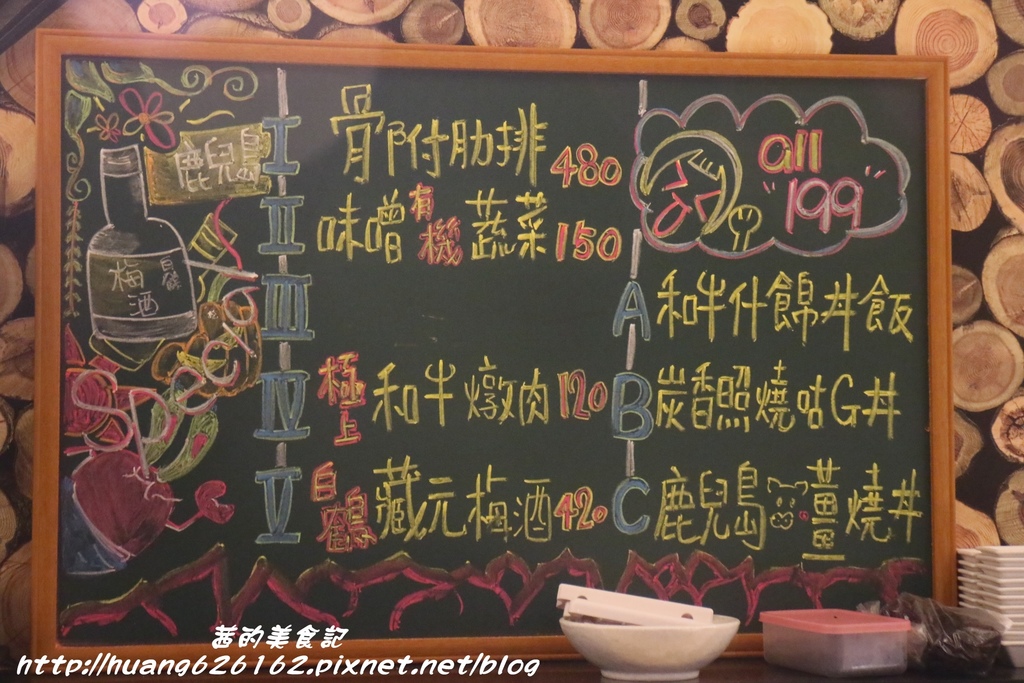 鹿兒島
梅酒
白鶴
Special
I 骨附肋排 480
II 味噌有機蔬菜 150
III
IV 極上和牛燉肉 120
V 白鶴藏元梅酒 420
all
"199"
A 和牛什錦丼飯
B 炭香照燒咕G丼
C 鹿兒島薑燒丼
茜的美食記
http://huang626162.pixnet.net/blog